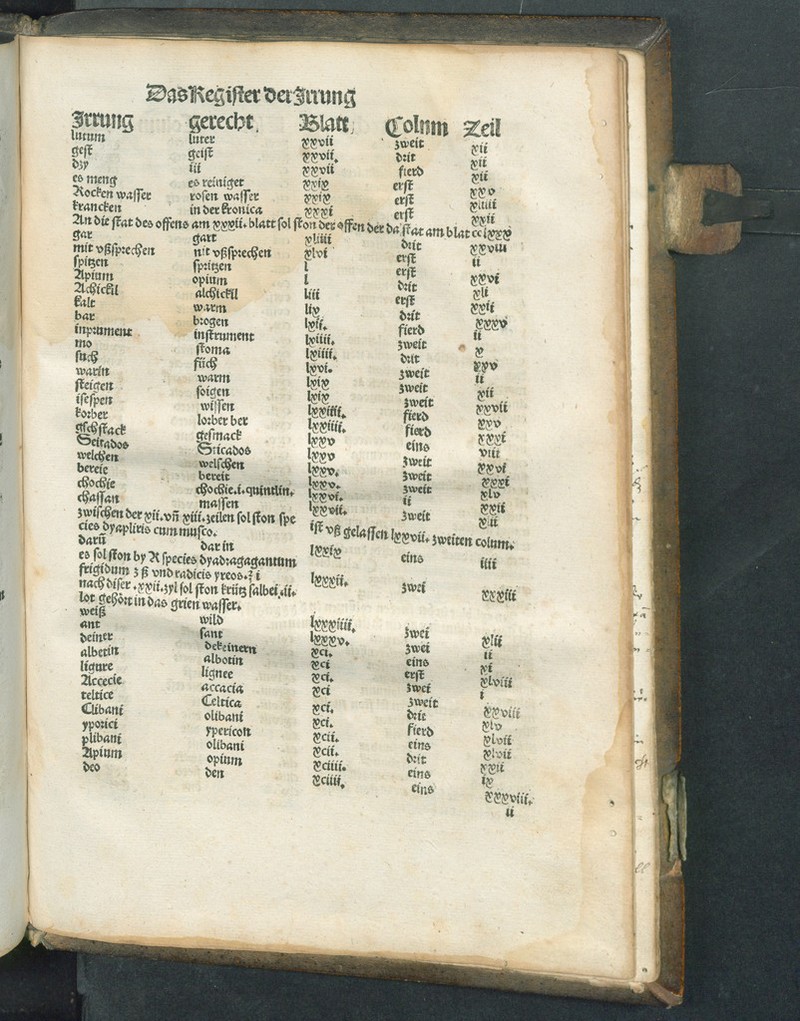 Das Register der Irrung
Irrung gerecht. Blatt. Colum Zeil
lutum luter xxvii zweit xii
gest geist xxvii. drit xii
dzy iii xxvii fierd xii
es meng es reiniget xxix erst xxv
Rocken wasser rosen wasser xxix erst xliiii
krancken in der kronica xxxi erst xxii
An die stat des offens am xxxii. blatt sol ston der offen der da stat am blat cclxxx
gar gart xliiii drit xxviii
mit vßsprechen nit vßsprechen xlvi erst ii
spitzen spritzen l erst xxvi
Apium opium l drit xli
Achickil alchickil liii erst xxii
kalt warm lix drit xxxv
bar brogen lxii. fierd ii
inprument instrument lxiiii. zweit x
mo stoma lxiiii. drit xxv
such füch lxvi. zweit ii
warin warm lxix zweit xii
steigen soigen lxix zweit xxvii
isespen wissen lxxiiii. fierd xxv
korber lorber ber lxxiiii. fierd xxxi
gschstack gesmack lxxv eins viii
Seitados Sticados lxxv zweit xxvi
welchen welschen lxxv. zweit xxxi
bereie bereit lxxv. zweit xlv
chochie chochie.i.quintlin. lxxvi. ii xxii
chassan massen lxxvii. zweit xii
zwischen der xii. vñ xiii. zeilen sol ston spe
cies dyapliris cum musco. ist vß gelassen lxxvii. zweiten colum.
darũ dar in lxxix eins iiii
es sol ston by R species dyadragagantum
frigidum ʒ ß vnd radicis yreos. ʒ i lxxxii. zwei xxxiii
nach diser .xxii. zyl sol ston krütz salbei .ii.
lot gehört in das grien wasser.
weiß wild lxxxiiii. zwei xlii
ant sant lxxxv. zwei ii
deiner dekeinem xci. eins xi
albetin albotin xci erst xlviii
ligure lignee xci. zwei i
Accecie accacia xci zweit xxviii
teltice Celtica xci. drit xlv
Clibani olibani xci. fierd xlvii
yporici ypericon xcii. eins xlvii
plibani olibani xcii. drit xxii
Apium opium xciiii. eins ix
deo den xciiii. eins xxxviii.
ii